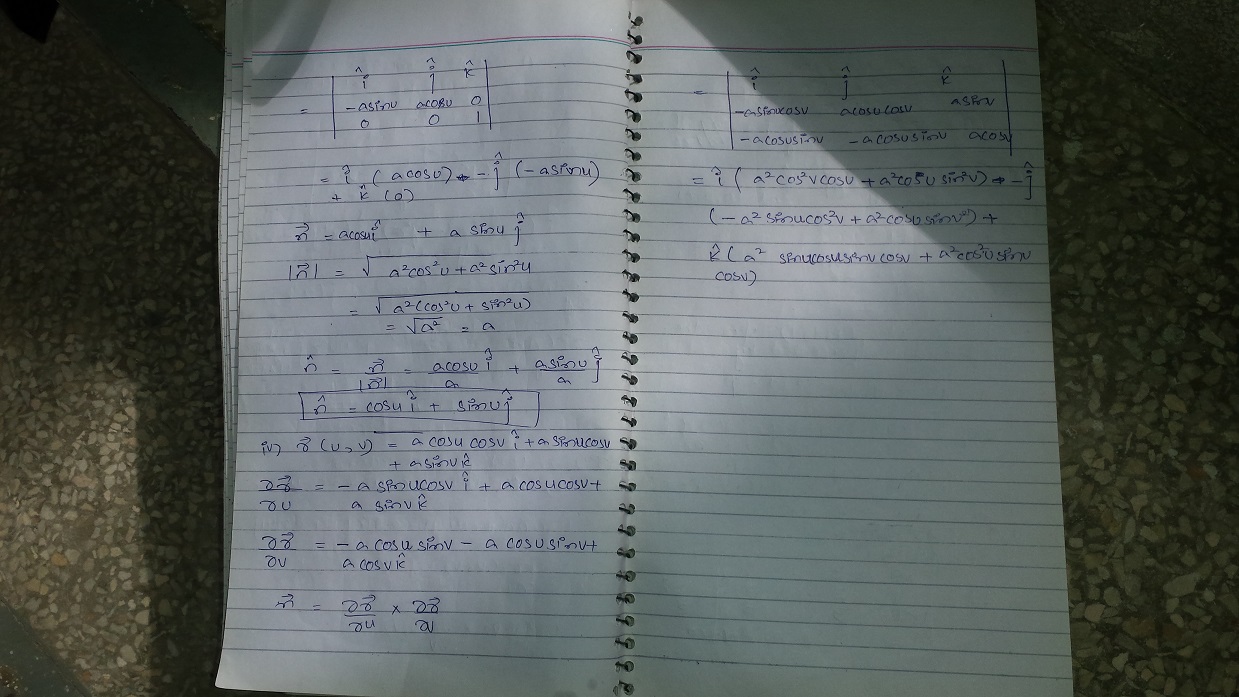 = | î ĵ k̂ |
| -asinu acosu 0 |
| 0 0 1 |
= î (acosu) - ĵ (-asinu)
+ k̂ (0)
n⃗ = acosu î + a sinu ĵ
|n⃗| = √a²cos²u + a²sin²u
= √a²(cos²u + sin²u)
= √a² = a
n̂ = n⃗/|n⃗| = acosu/a î + asinu/a ĵ
n̂ = cosu î + sinu ĵ
iv) r⃗ (u, v) = a cosu cosv î + a sinu cosv
+ a sinv k̂
∂r⃗/∂u = -a sinu cosv î + a cosu cosv +
a sinv k̂
∂r⃗/∂v = -a cosu sinv - a cosu sinv +
a cosv k̂
n⃗ = ∂r⃗/∂u × ∂r⃗/∂v
= | î ĵ k̂ |
| -asinucosv acosucosv asinv |
| -acosusinv -acosusinv acosv |
= î (a²cos²vcosu + a²cosu sin²v) - ĵ
(-a² sinucos²v + a²cosu sinv²) +
k̂ (a² sinucosusinv cosv + a²cos²u sinv
cosv)